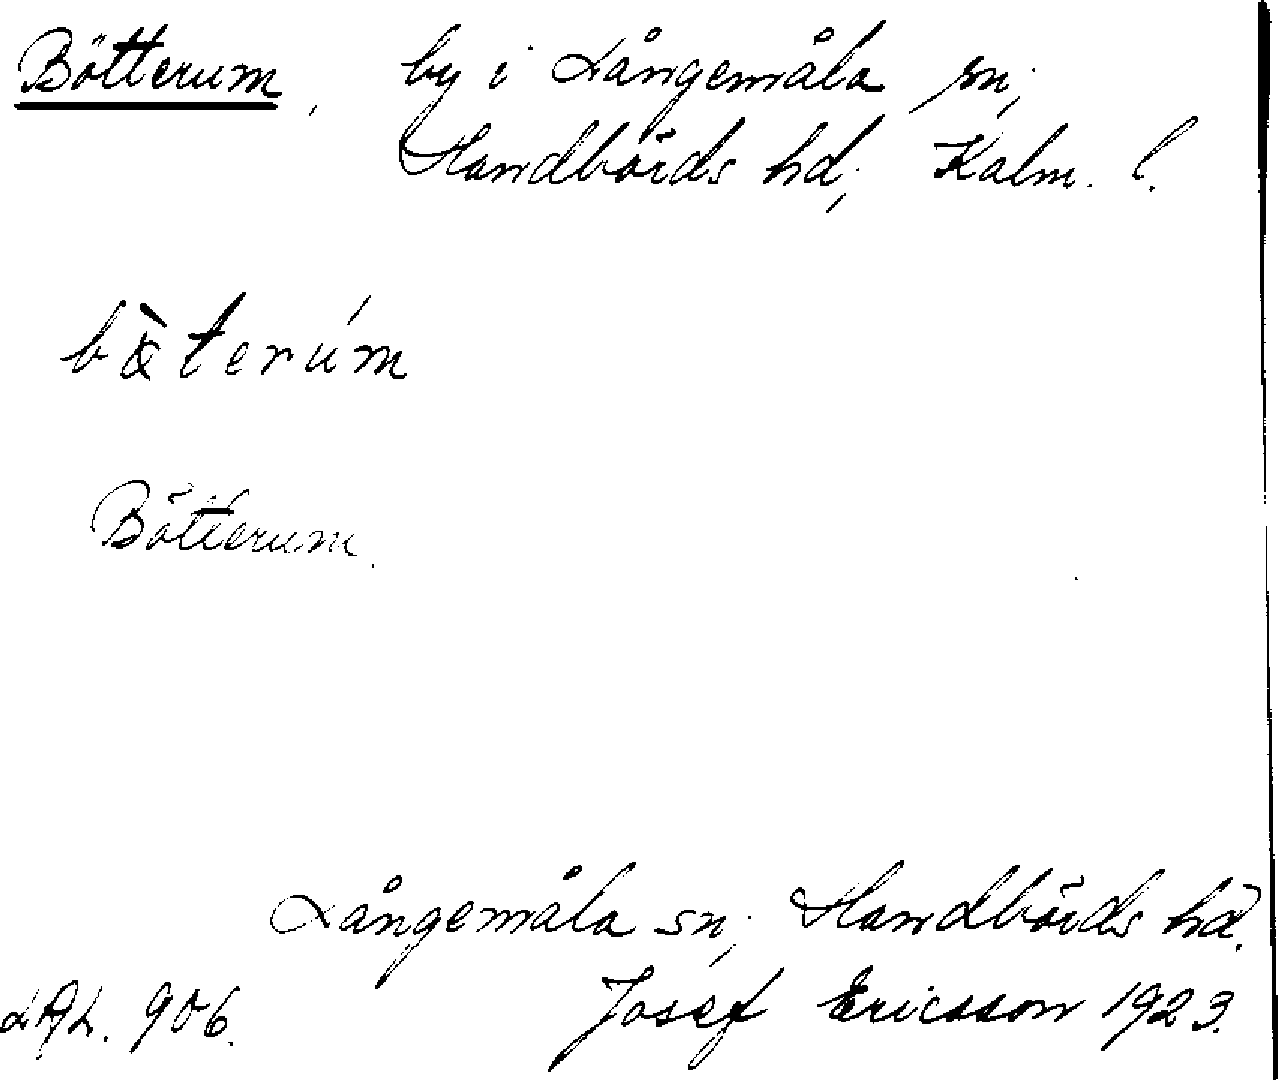 Bötterum, by i Långemåla sn;
Handbörds hd; Kalm. l.
bœ̀terúm
Bötterum.
Långemåla sn; Handbörds hd.
906. Josef Ericsson 1923.